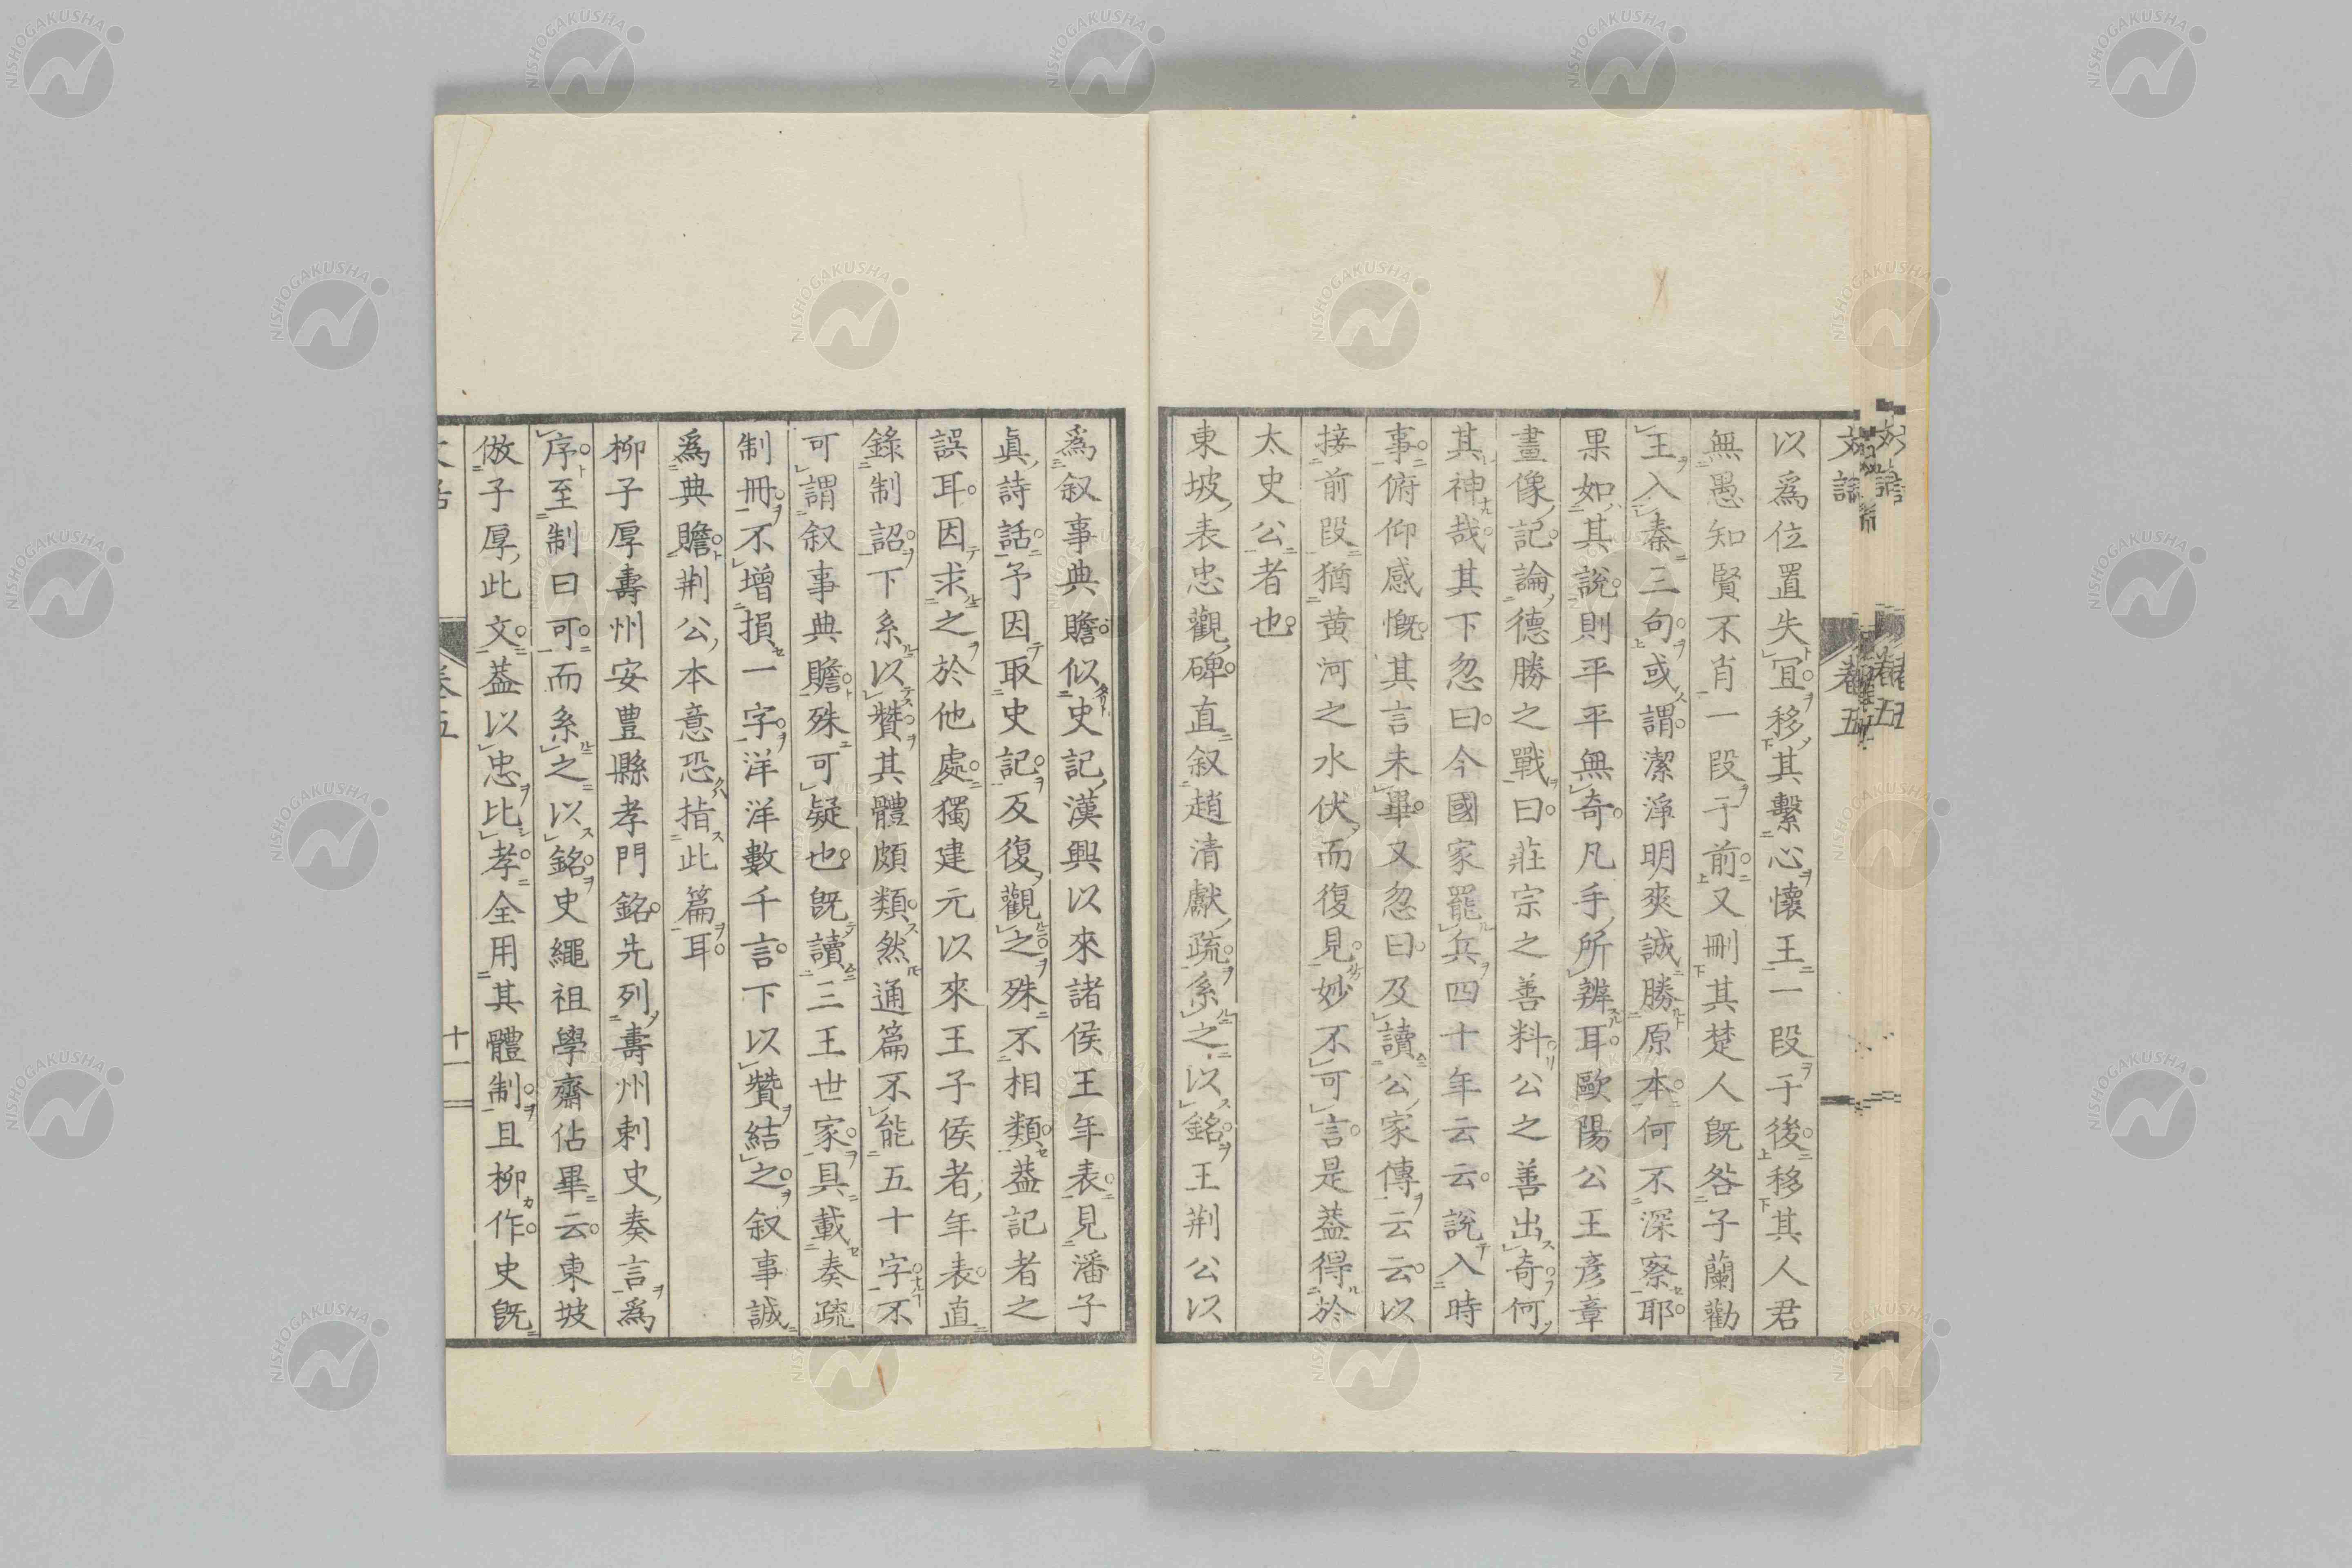 以爲位置失宜移其繫心懷王一段于後移其人君
無愚知賢不肖一段于前又刪其楚人既咎子蘭勸
王入秦三句或謂潔淨明爽誠勝原本何不深察耶
果如其說則平平無奇凡手所辨耳歐陽公王彦章
畫像記論德勝之戰曰莊宗之善料公之善出奇何
其神哉其下忽曰今國家罷兵四十年云云說入時
事俯仰感慨其言未畢又忽曰及讀公家傳云云以
接前段猶黄河之水伏而復見妙不可言是葢得於
太史公者也
東坡表忠觀碑直叙趙清獻疏系之以銘王荆公以
爲叙事典贍似史記漢興以來諸侯王年表見潘子
眞詩話予因取史記反復觀之殊不相類葢記者之
誤耳因求之於他處獨建元以來王子侯者年表直
錄制詔下系以贊其體頗類然通篇不能五十字不
可謂叙事典贍殊可疑也既讀三王世家具載奏疏
制冊不增損一字洋洋數千言下以贊結之叙事誠
爲典贍荆公本意恐指此篇耳
柳子厚壽州安豊縣孝門銘先列壽州刺史奏言爲
序至制曰可而系之以銘史繩祖學齋佔畢云東坡
倣子厚此文葢以忠比孝全用其體制且柳作史既
卷五
十一
NISHOGAKUSHA